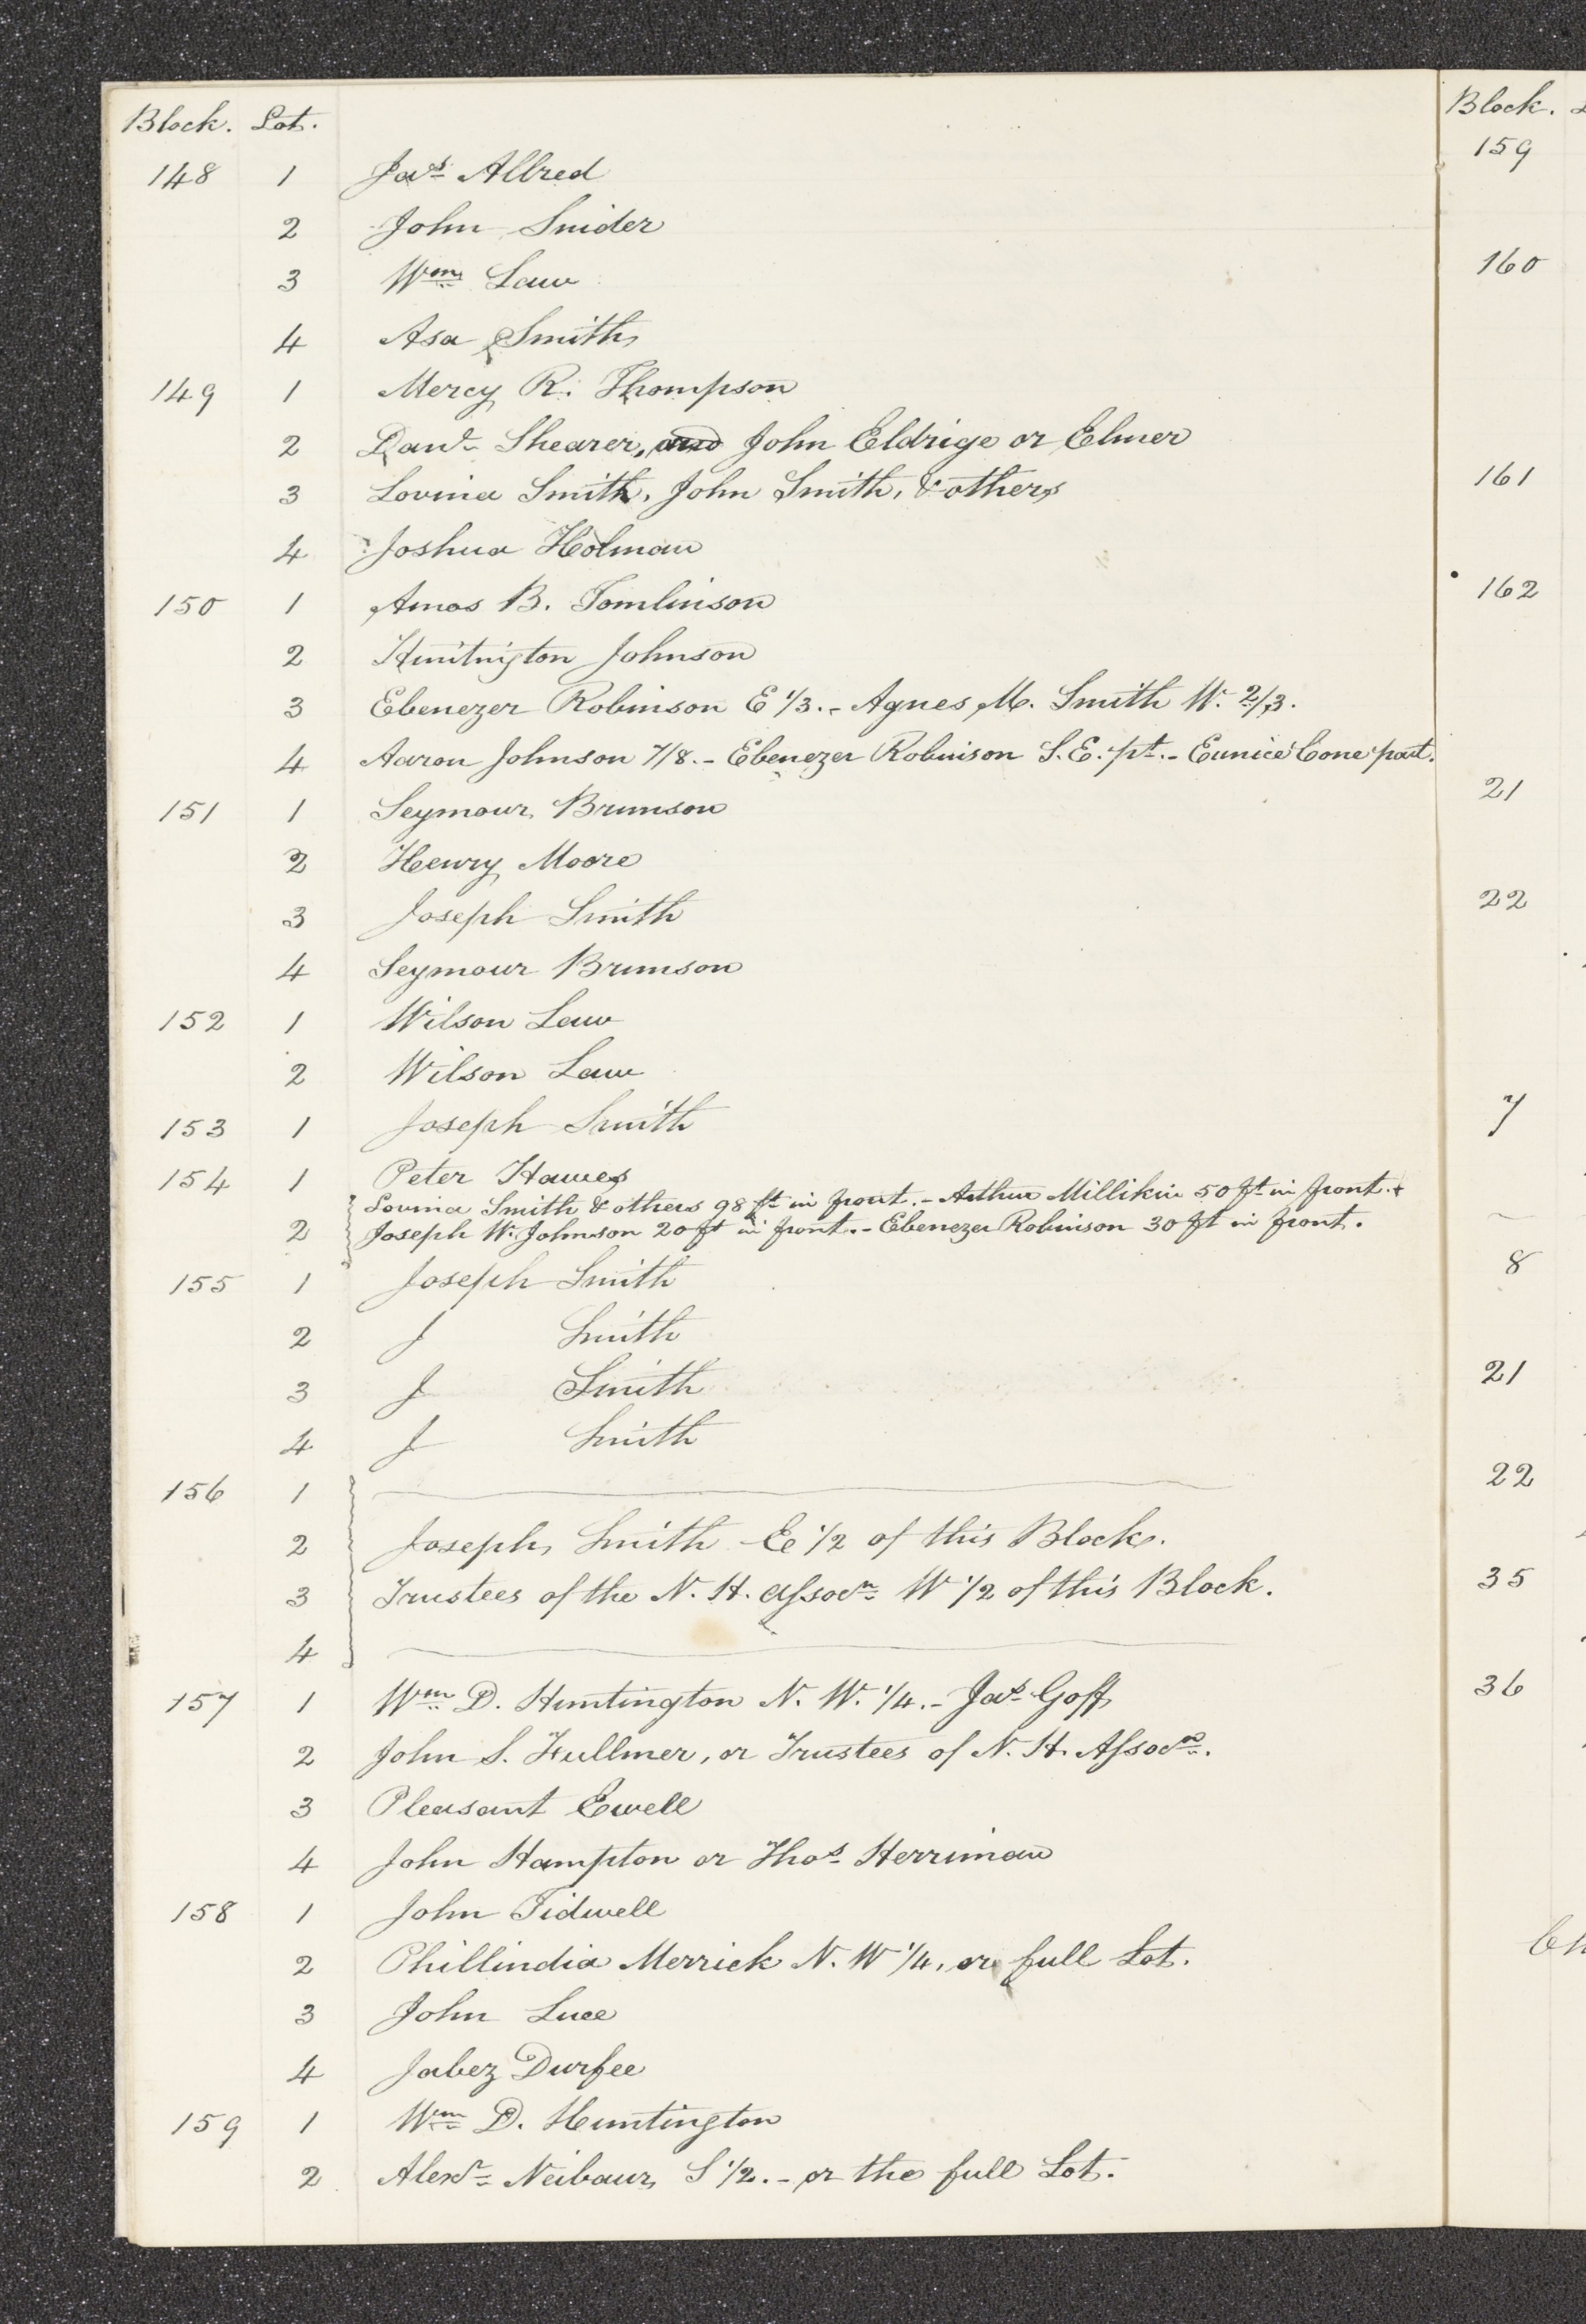 Block. Lot.
148 1 Jas. Allred
2 John Snider
3 Wm. Law
4 Asa Smith
149 1 Mercy R. Thompson
2 Danl. Shearer, and John Eldrige or Elmer
3 Lovina Smith, John Smith, & others
4 Joshua Holman
150 1 Amos B. Tomlinson
2 Huntington Johnson
3 Ebenezer Robinson E 1/3. - Agnes M. Smith W. 2/3.
4 Aaron Johnson 7/8. - Ebenezer Robinson S. E. pt. - Eunice Cone part.
151 1 Seymour Brunson
2 Henry Moore
3 Joseph Smith
4 Seymour Brunson
152 1 Wilson Law
2 Wilson Law
153 1 Joseph Smith
154 1 Peter Hawes
Lovina Smith & others 98 ft in front. - Arthur Millikin 50 ft in front. +
2 Joseph W. Johnson 20 ft in front. - Ebenezer Robinson 30 ft in front.
155 1 Joseph Smith
2 J Smith
3 J Smith
4 J Smith
156 1
2 Joseph Smith E 1/2 of this Block.
3 Trustees of the N. H. Assocn. W 1/2 of this Block.
4
157 1 Wm. D. Huntington N. W. 1/4. - Jas. Goff
2 John S. Fullmer, or Trustees of N. H. Assocn.
3 Pleasant Ewell
4 John Hampton or Thos. Herriman
158 1 John Tidwell
2 Phillindia Merrick N. W 1/4, or full Lot.
3 John Luce
4 Jabez Durfee
159 1 Wm. D. Huntington
2 Alexr. Neibaur S 1/2. - or the full Lot.
Block.
159
160
161
162
21
22
7
8
21
22
35
36